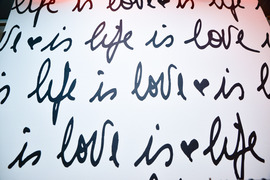 is love is life
♥ is life is love
is life is love ♥
is love is ♥ life